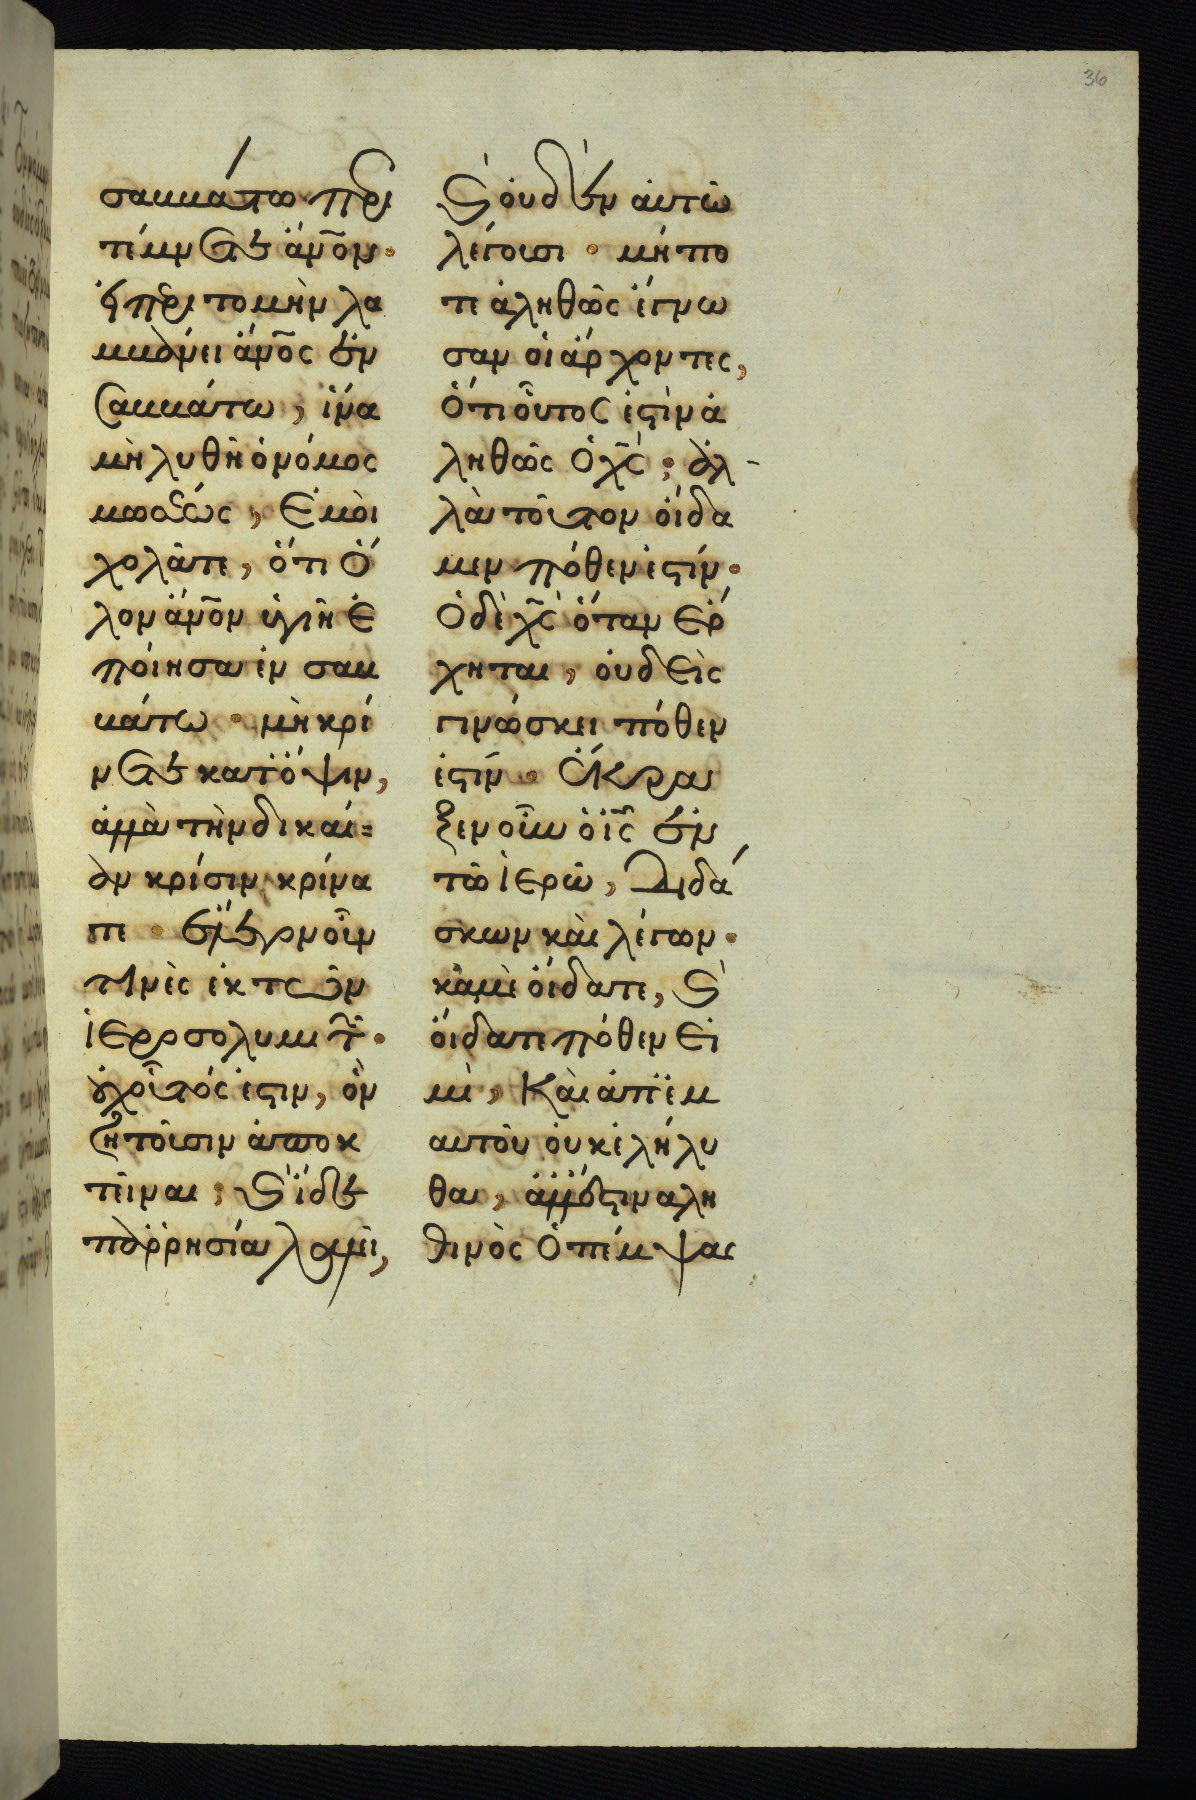 36
σαββάτω περι
τέμνετε ἄν̅ον·
εἰ περιτομὴν λα
μβάνει ἄν̅ος ἐν
σαββάτω, ἵνα
μὴ λυθῆ ὁ νόμος
μωσέως, ἐμοὶ
χολᾶτε, ὅτι ὅ
λον ἄν̅ον ὑγιῆ ἐ
ποίησα ἐν σαβ
βάτω· μὴ κρί
νετε κατ' ὄψιν,
ἀλλὰ τὴν δικαί=
αν κρίσιν κρίνα
τε· ἔλεγον οὖν
τινὲς ἐκ τῶν
ἱεροσολυμιτῶν·
οὐχ οὗτός ἐστιν, ὃν
ζητοῦσιν ἀποκ
τεῖναι; καὶ ἴδε
παρρησία λαλεῖ,
καὶ οὐδὲν αὐτῶ
λέγουσι· μήπο
τε ἀληθῶς ἔγνω
σαν οἱ ἄρχοντες,
ὅτι οὗτος ἐστὶν ἀ
ληθῶς ὁ χ̅ς; ἀλ-
λὰ τοῦτον οἴδα
μεν πόθεν ἐστίν·
ὁ δὲ χ̅ς ὅταν ἔρ
χηται, οὐδεὶς
γινώσκει πόθεν
ἐστίν· ἔκρα
ξεν οὖν ὁ ι̅ς ἐν
τῶ ἱερῶ, διδά
σκων καὶ λέγων·
κἀμὲ οἴδατε, καὶ
οἴδατε πόθεν εἰ
μὶ, καὶ ἀπ' ἐμ
αυτοῦ οὐκ ἐλήλυ
θα, ἀλλ' ἔστιν αλη
θινὸς ὁ πέμψας